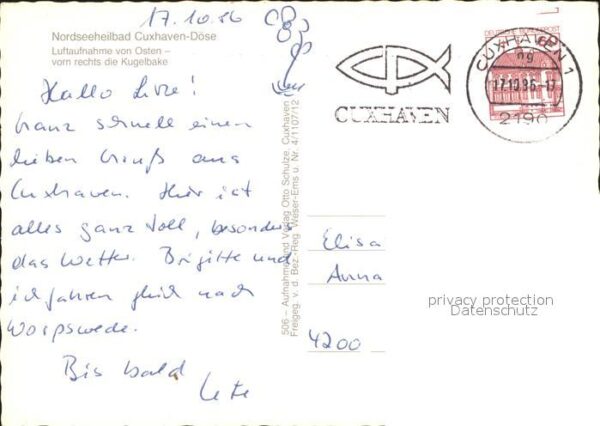 17.10.86
Nordseeheilbad Cuxhaven-Döse
Luftaufnahme von Osten –
vorn rechts die Kugelbake
Hallo
Ganz schnell einen
lieben Gruß aus
Cuxhaven. Hier ist
alles ganz toll, besonders
das Wetter. Brigitte und
ich fahren gleich nach
Worpswede.
Bis bald
506 – Aufnahme und Verlag Otto Schulze, Cuxhaven
Freigeg. v. d. Bez.-Reg. Weser-Ems u. Nr. 4/1107/12
CUXHAVEN
CUXHAVEN 1
ng
17.10.86
2190
Elisa
Anna
4200
privacy protection
Datenschutz